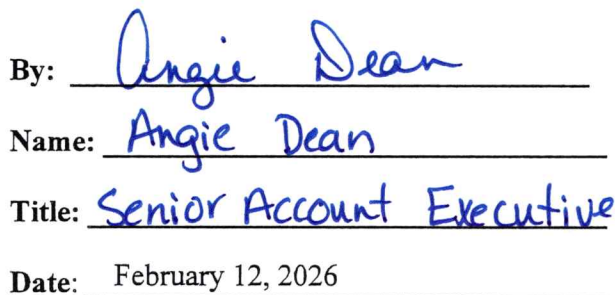 By: Angie Dean
Name: Angie Dean
Title: Senior Account Executive
Date: February 12, 2026